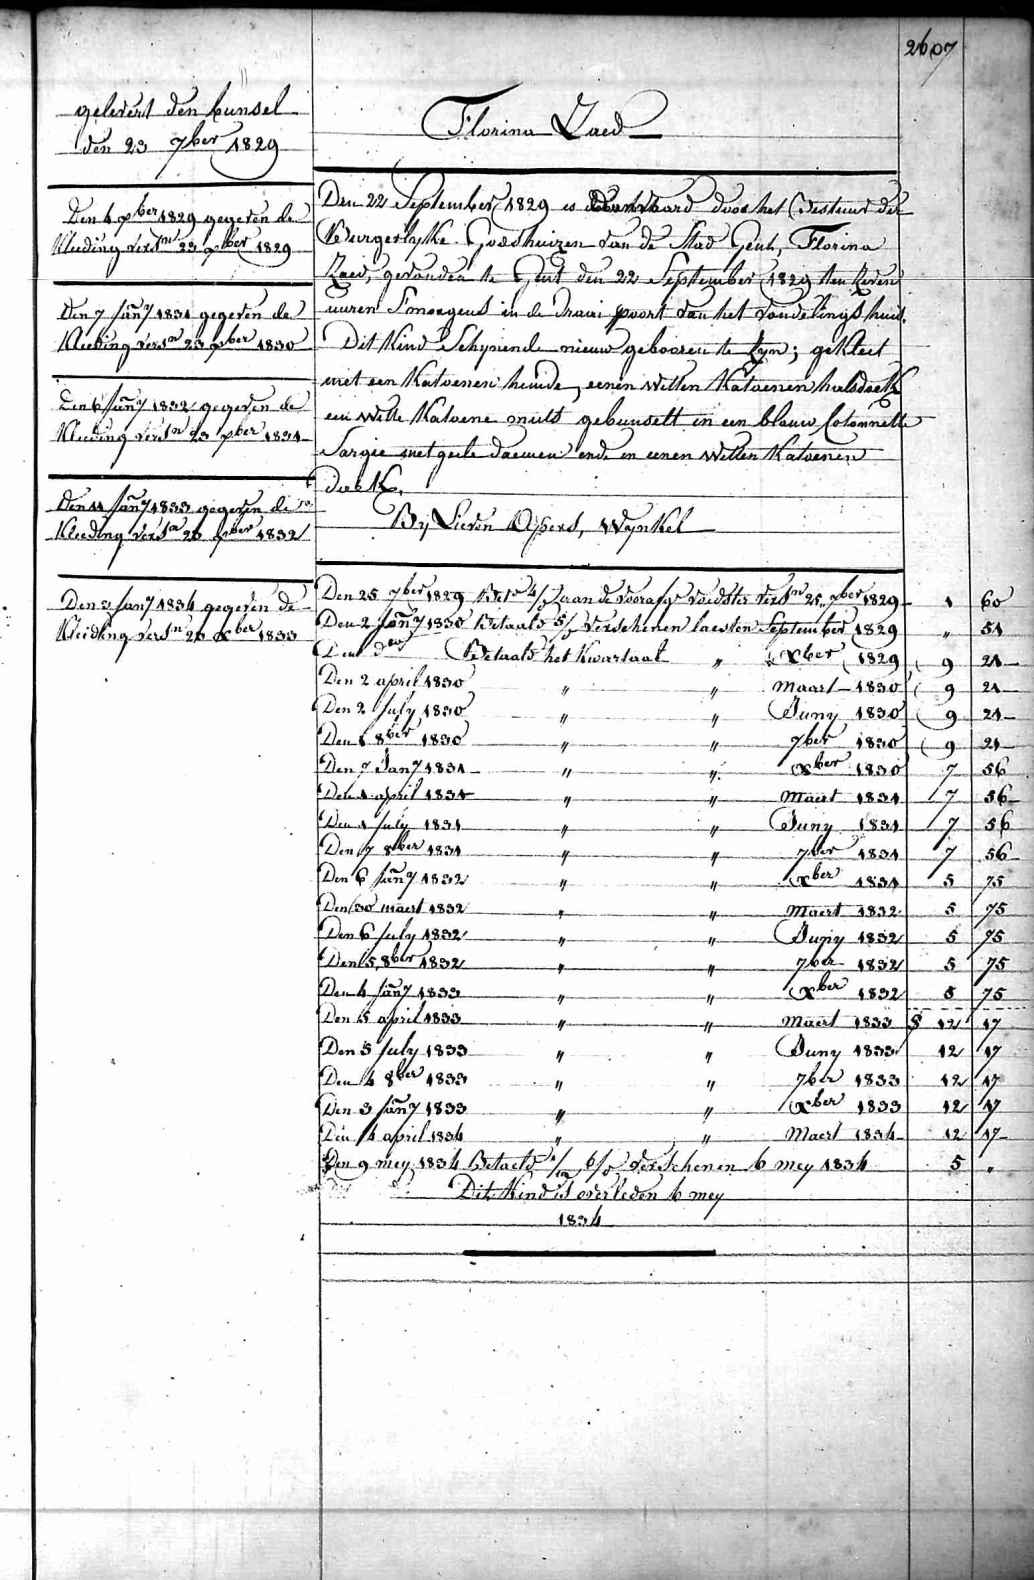 2607
gelevert den bunsel
den 23 7ber 1829
Den 4 xber 1829 gegeven de
Kleeding versn 23 xber 1829
Den 7 Jany 1831 gegeven de
Kleeding versn 23 xber 1830
Den 6 Jany 1832 gegeven de
Kleeding versn 23 xber 1831
Den 11 Jany 1833 gegeven de
Kleeding versn 23 xber 1832
Den 3 Jany 1834 gegeven de
Kleeding versn 23 xber 1833
Florina Zaed
Den 22 September 1829 is door het Bestuur der
Burgerlyke Godshuizen van de Stad Gent, Florina
Zaed, gevonden te Gent den 22 September 1829 ten zeven
uuren Smorgens in de Draai poort van het vondelings huis.
Dit Kind Schynende nieuw gebooren te zyn; gekleet
met een Katoenen hemde, eenen witten Katoenen halsdoek
een witte Katoene muts gebunselt in een blauw Cotonnette
Sargie met geele daemen ende in eenen witten Katoenen
doek.
By Lieven Wynkel
Den 25 7ber 1829 Bete 4/ aan de voedster versn 25 7ber 1829 1 60
Den 2 Jany 1830 Betaald 5/ verschenen laesten September 1829 " 51
Den den Betaald het Kwartaal " xber 1829 9 21
Den 2 april 1830 " " Maart 1830 9 21
Den 2 July 1830 " " Juny 1830 9 21
Den 1 8ber 1830 " " 7ber 1830 9 21
Den 7 Jany 1831 " " xber 1830 7 56
Den 1 april 1831 " " Maert 1831 7 56
Den 1 July 1831 " " Juny 1831 7 56
Den 7 8ber 1831 " " 7ber 1831 7 56
Den 6 Jany 1832 " " xber 1831 5 75
Den 30 maert 1832 " " Maert 1832 5 75
Den 6 July 1832 " " Juny 1832 5 75
Den 5 8ber 1832 " " 7ber 1832 5 75
Den 4 Jany 1833 " " xber 1832 5 75
Den 5 april 1833 " " Maert 1833 12 17
Den 5 July 1833 " " Juny 1833 12 17
Den 4 8ber 1833 " " 7ber 1833 12 17
Den 3 Jany 1833 " " xber 1833 12 17
Den 4 april 1834 " " Maert 1834 12 17
Den 9 mey 1834 Betaeld verschenen 6 mey 1834 5 "
Dit Kind is overleden 6 mey
1834